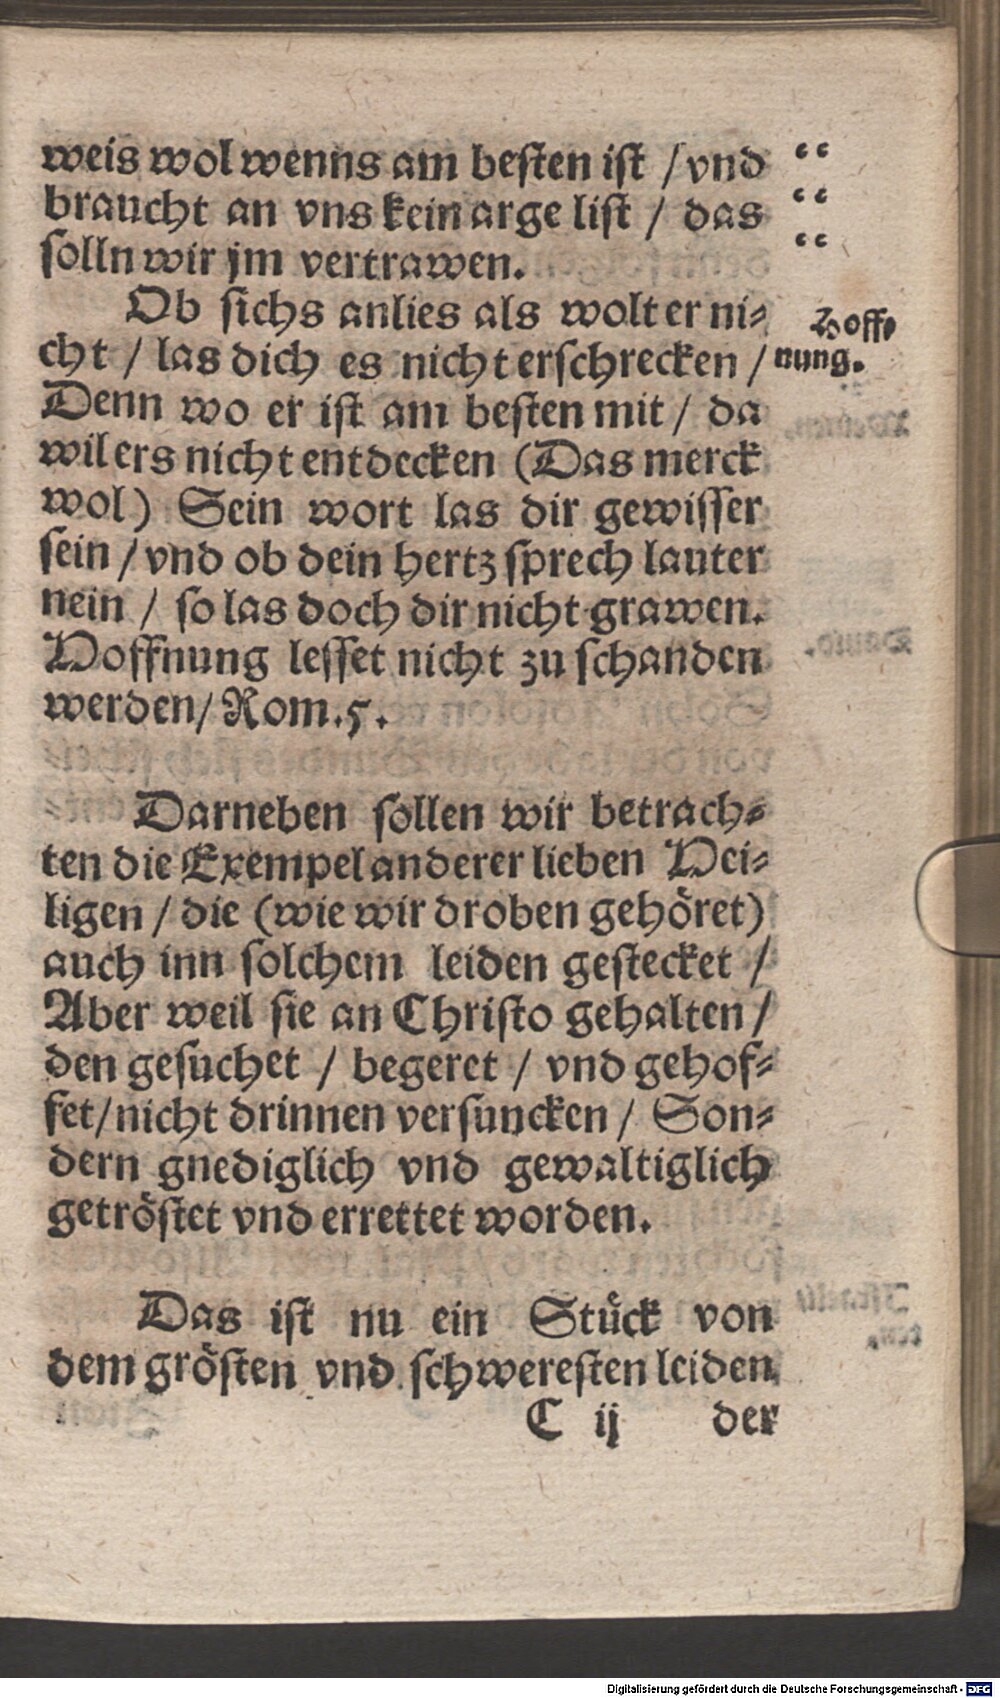 weis wol wenns am besten ist / vnd “
braucht an vns kein arge list / das “
solln wir jm vertrawen. “
Ob sichs anlies als wolt er ni⸗
cht / las dich es nicht erschrecken /
Hoff⸗
nung.
Denn wo er ist am besten mit / da
wil ers nicht entdecken (Das merck
wol) Sein wort las dir gewisser
sein / vnd ob dein hertz sprech lauter
nein / so las doch dir nicht grawen.
Hoffnung lesset nicht zu schanden
werden / Rom. 5.
Darneben sollen wir betrach⸗
ten die Exempel anderer lieben Hei⸗
ligen / die (wie wir droben gehöret)
auch inn solchem leiden gestecket /
Aber weil sie an Christo gehalten /
den gesuchet / begeret / vnd gehof⸗
fet / nicht drinnen versuncken / Son⸗
dern gnediglich vnd gewaltiglich
getröstet vnd errettet worden.
Das ist nu ein Stück von
dem grösten vnd schweresten leiden
C ij der
Digitalisierung gefördert durch die Deutsche Forschungsgemeinschaft - DFG